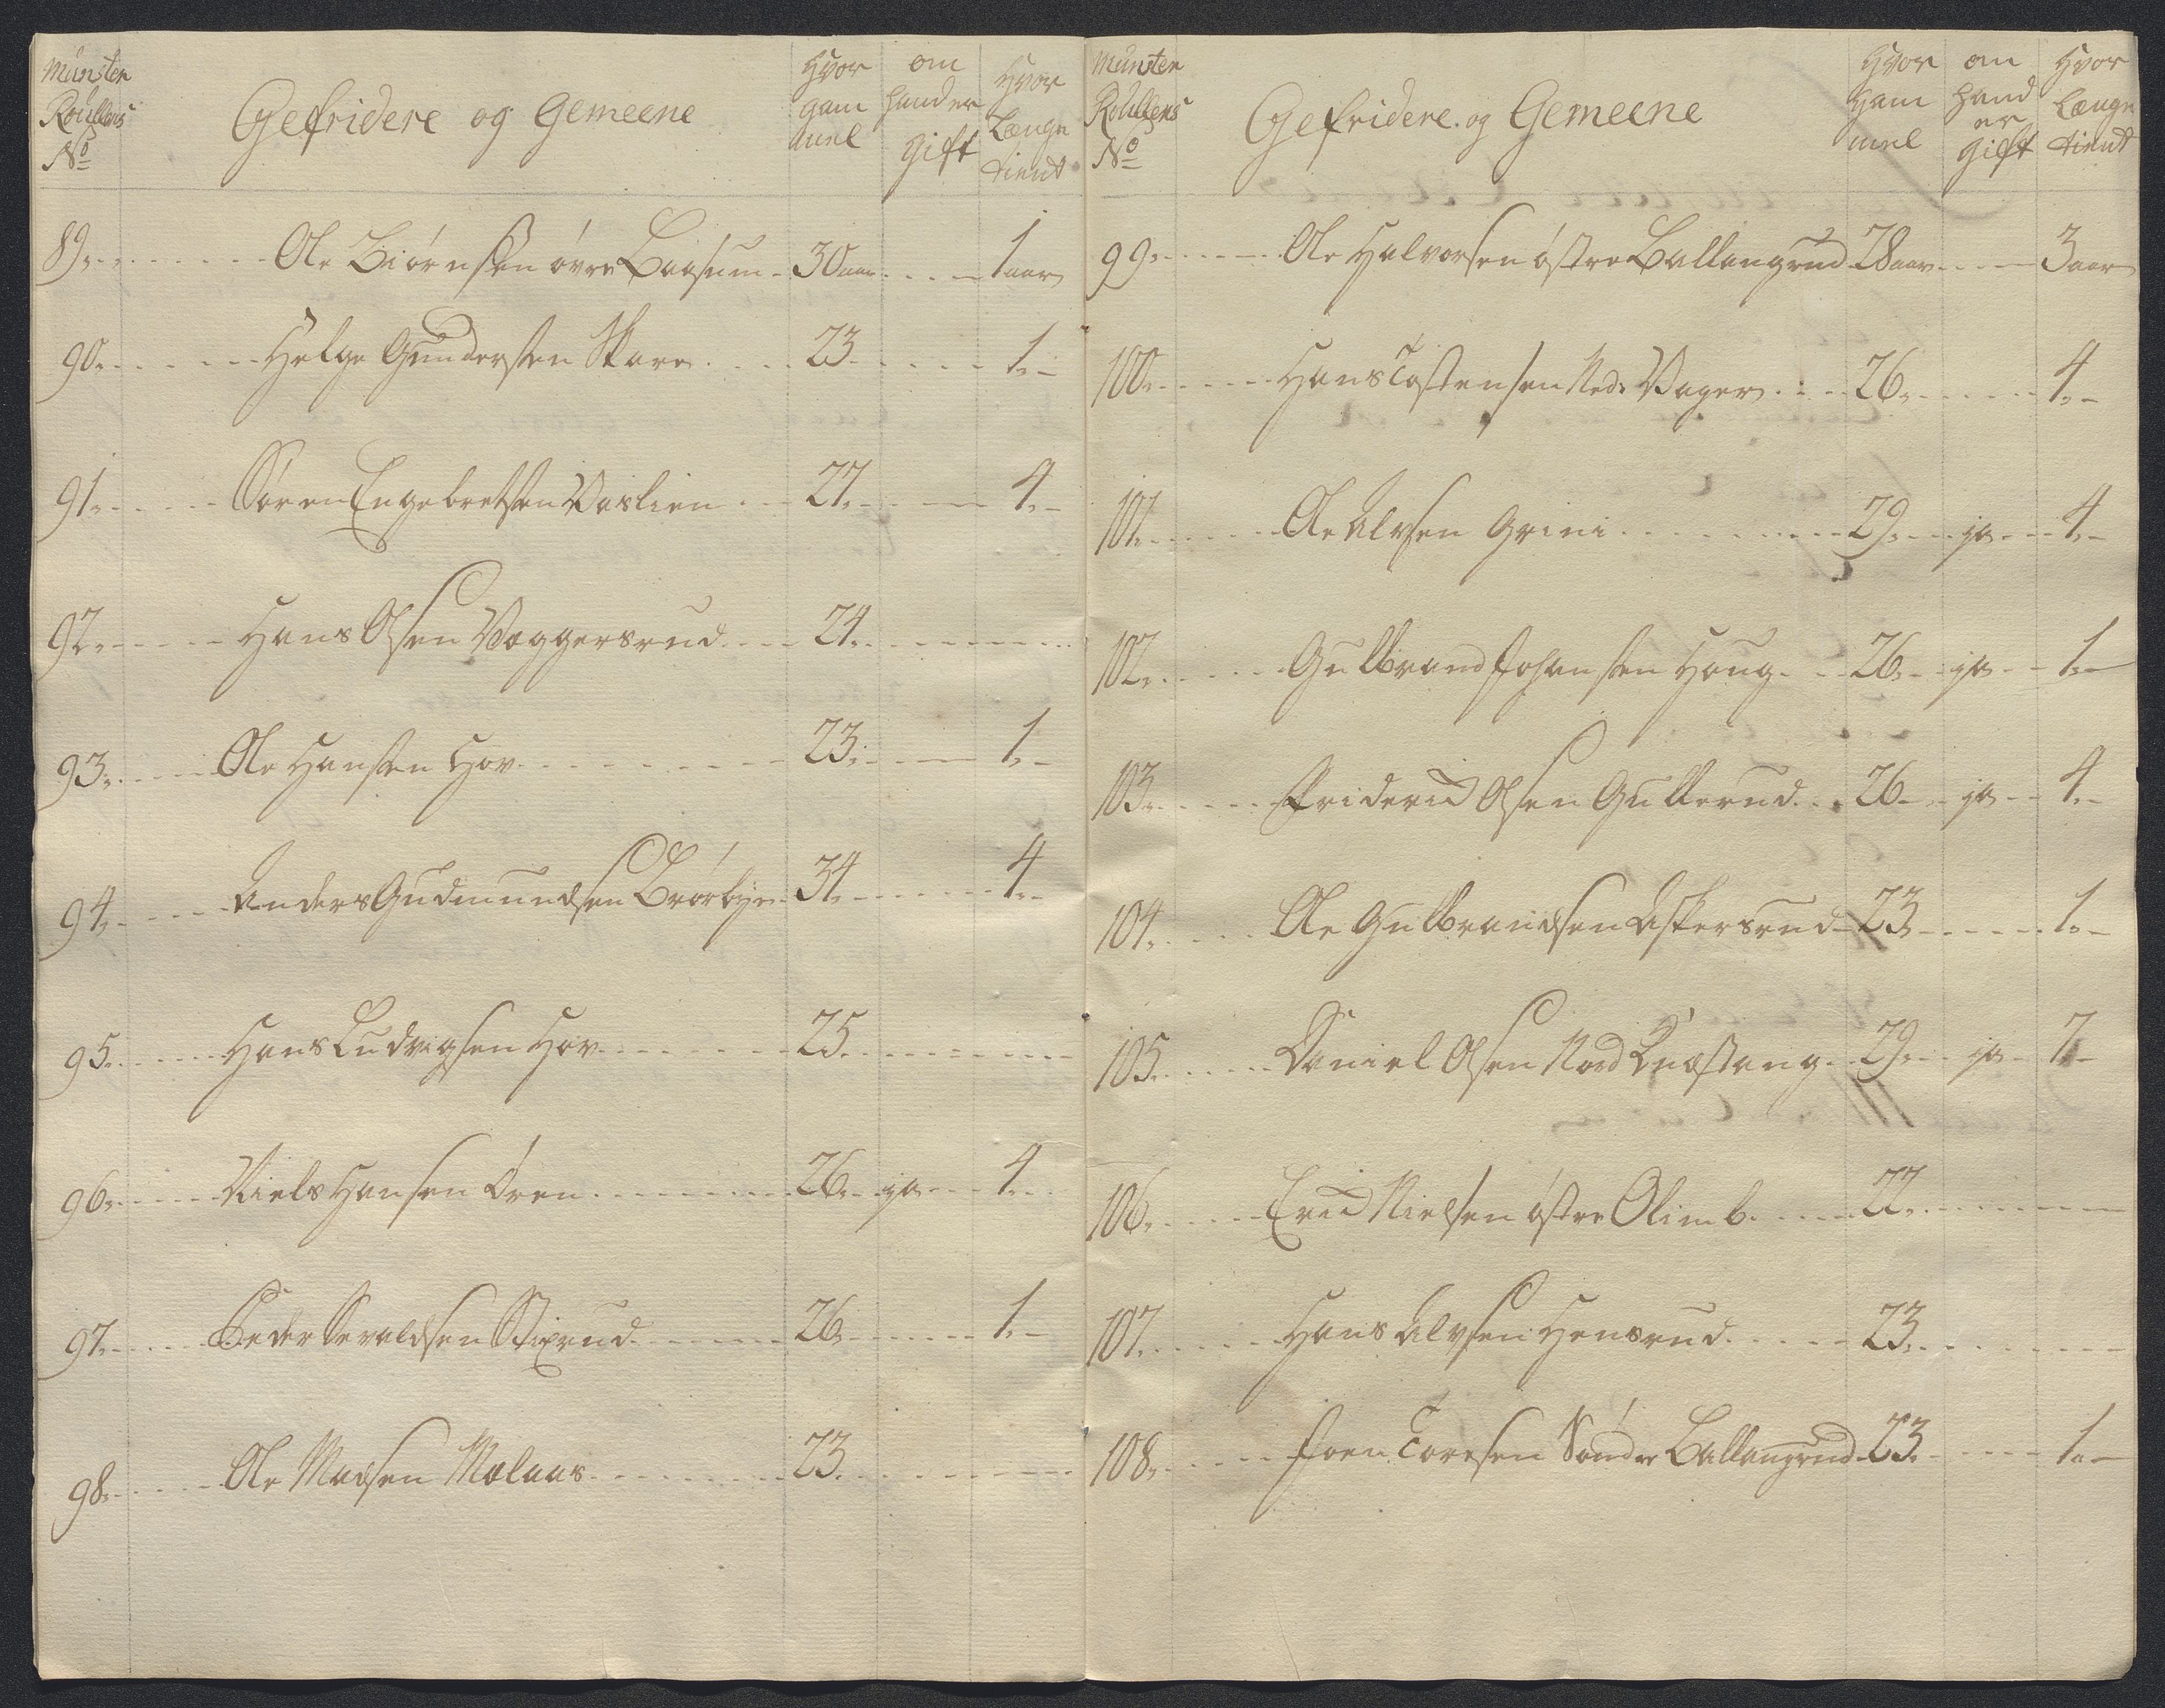 Munster
Roullens
No
Gefridere og Gemeene
Hvor
gam
mel
om
hand er
Gift
Hvor
Længe
tient
89. Ole Biørnsen øvre Baasum 30 aar 1 aar
90. Helge Gundersen Skare 23 1
91. Søren Engebretsen Vaslien 27 4
92. Hans Olsen Væggersrud 24
93. Ole Hansen Hov 23 1
94. Anders Gudmundsen Brørbye 34 4
95. Hans Ludvigsen Hov 25
96. Niels Hansen Øren 26 ja 4
97. Peder Svaldsen Stixrud 26 1
98. Ole Madsen Molaas 23
Munster
Roullens
No
Gefridere og Gemeene
Hvor
gam
mel
om
hand
er
gift
Hvor
Længe
tient
99. Ole Halvorsen østre Ballangrud 28 aar 3 aar
100. Hans Tostensen Ned. Vager 26 4
101. Ole Alvsen Grini 29 ja 4
102. Gulbrand Johansen Houg 26 ja 1
103. Friderich Olsen Gullerud 26 ja 4
104. Ole Gulbrandsen Askersrud 23 1
105. Daniel Olsen Nord Knæstang 29 ja 7
106. Erich Nielsen østre Olimb 22
107. Hans Alvsen Hensrud 23
108. Joen Toresen Sønder Ballangrud 23 1